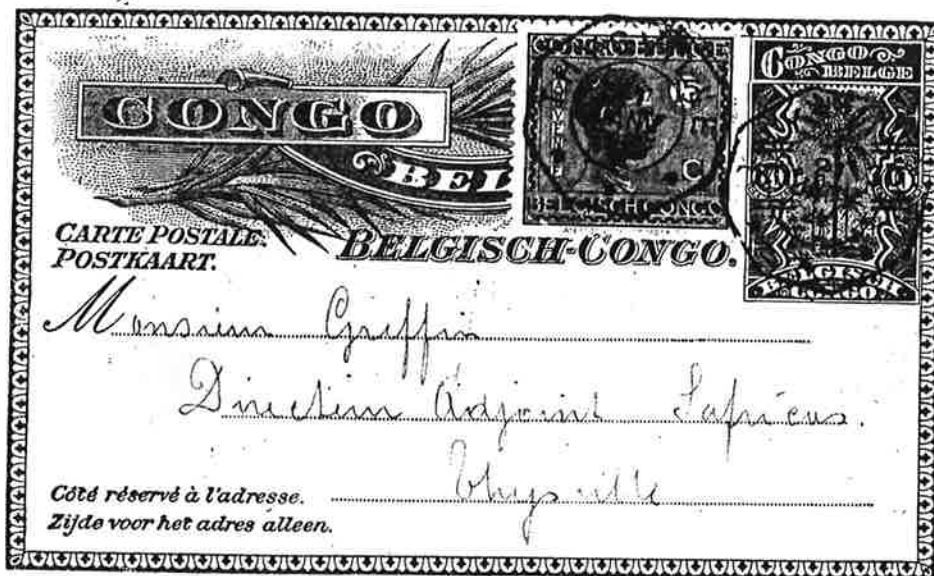 CONGO BELGE
15
C
BELGISCH CONGO
CONGO
BELGE
10
BELGISCH
CONGO
CONGO
BEL
CARTE POSTALE.
POSTKAART.
BELGISCH-CONGO.
Monsieur Griffin
Directeur Adjoint
Thysville
Côté réservé à l'adresse.
Zijde voor het adres alleen.